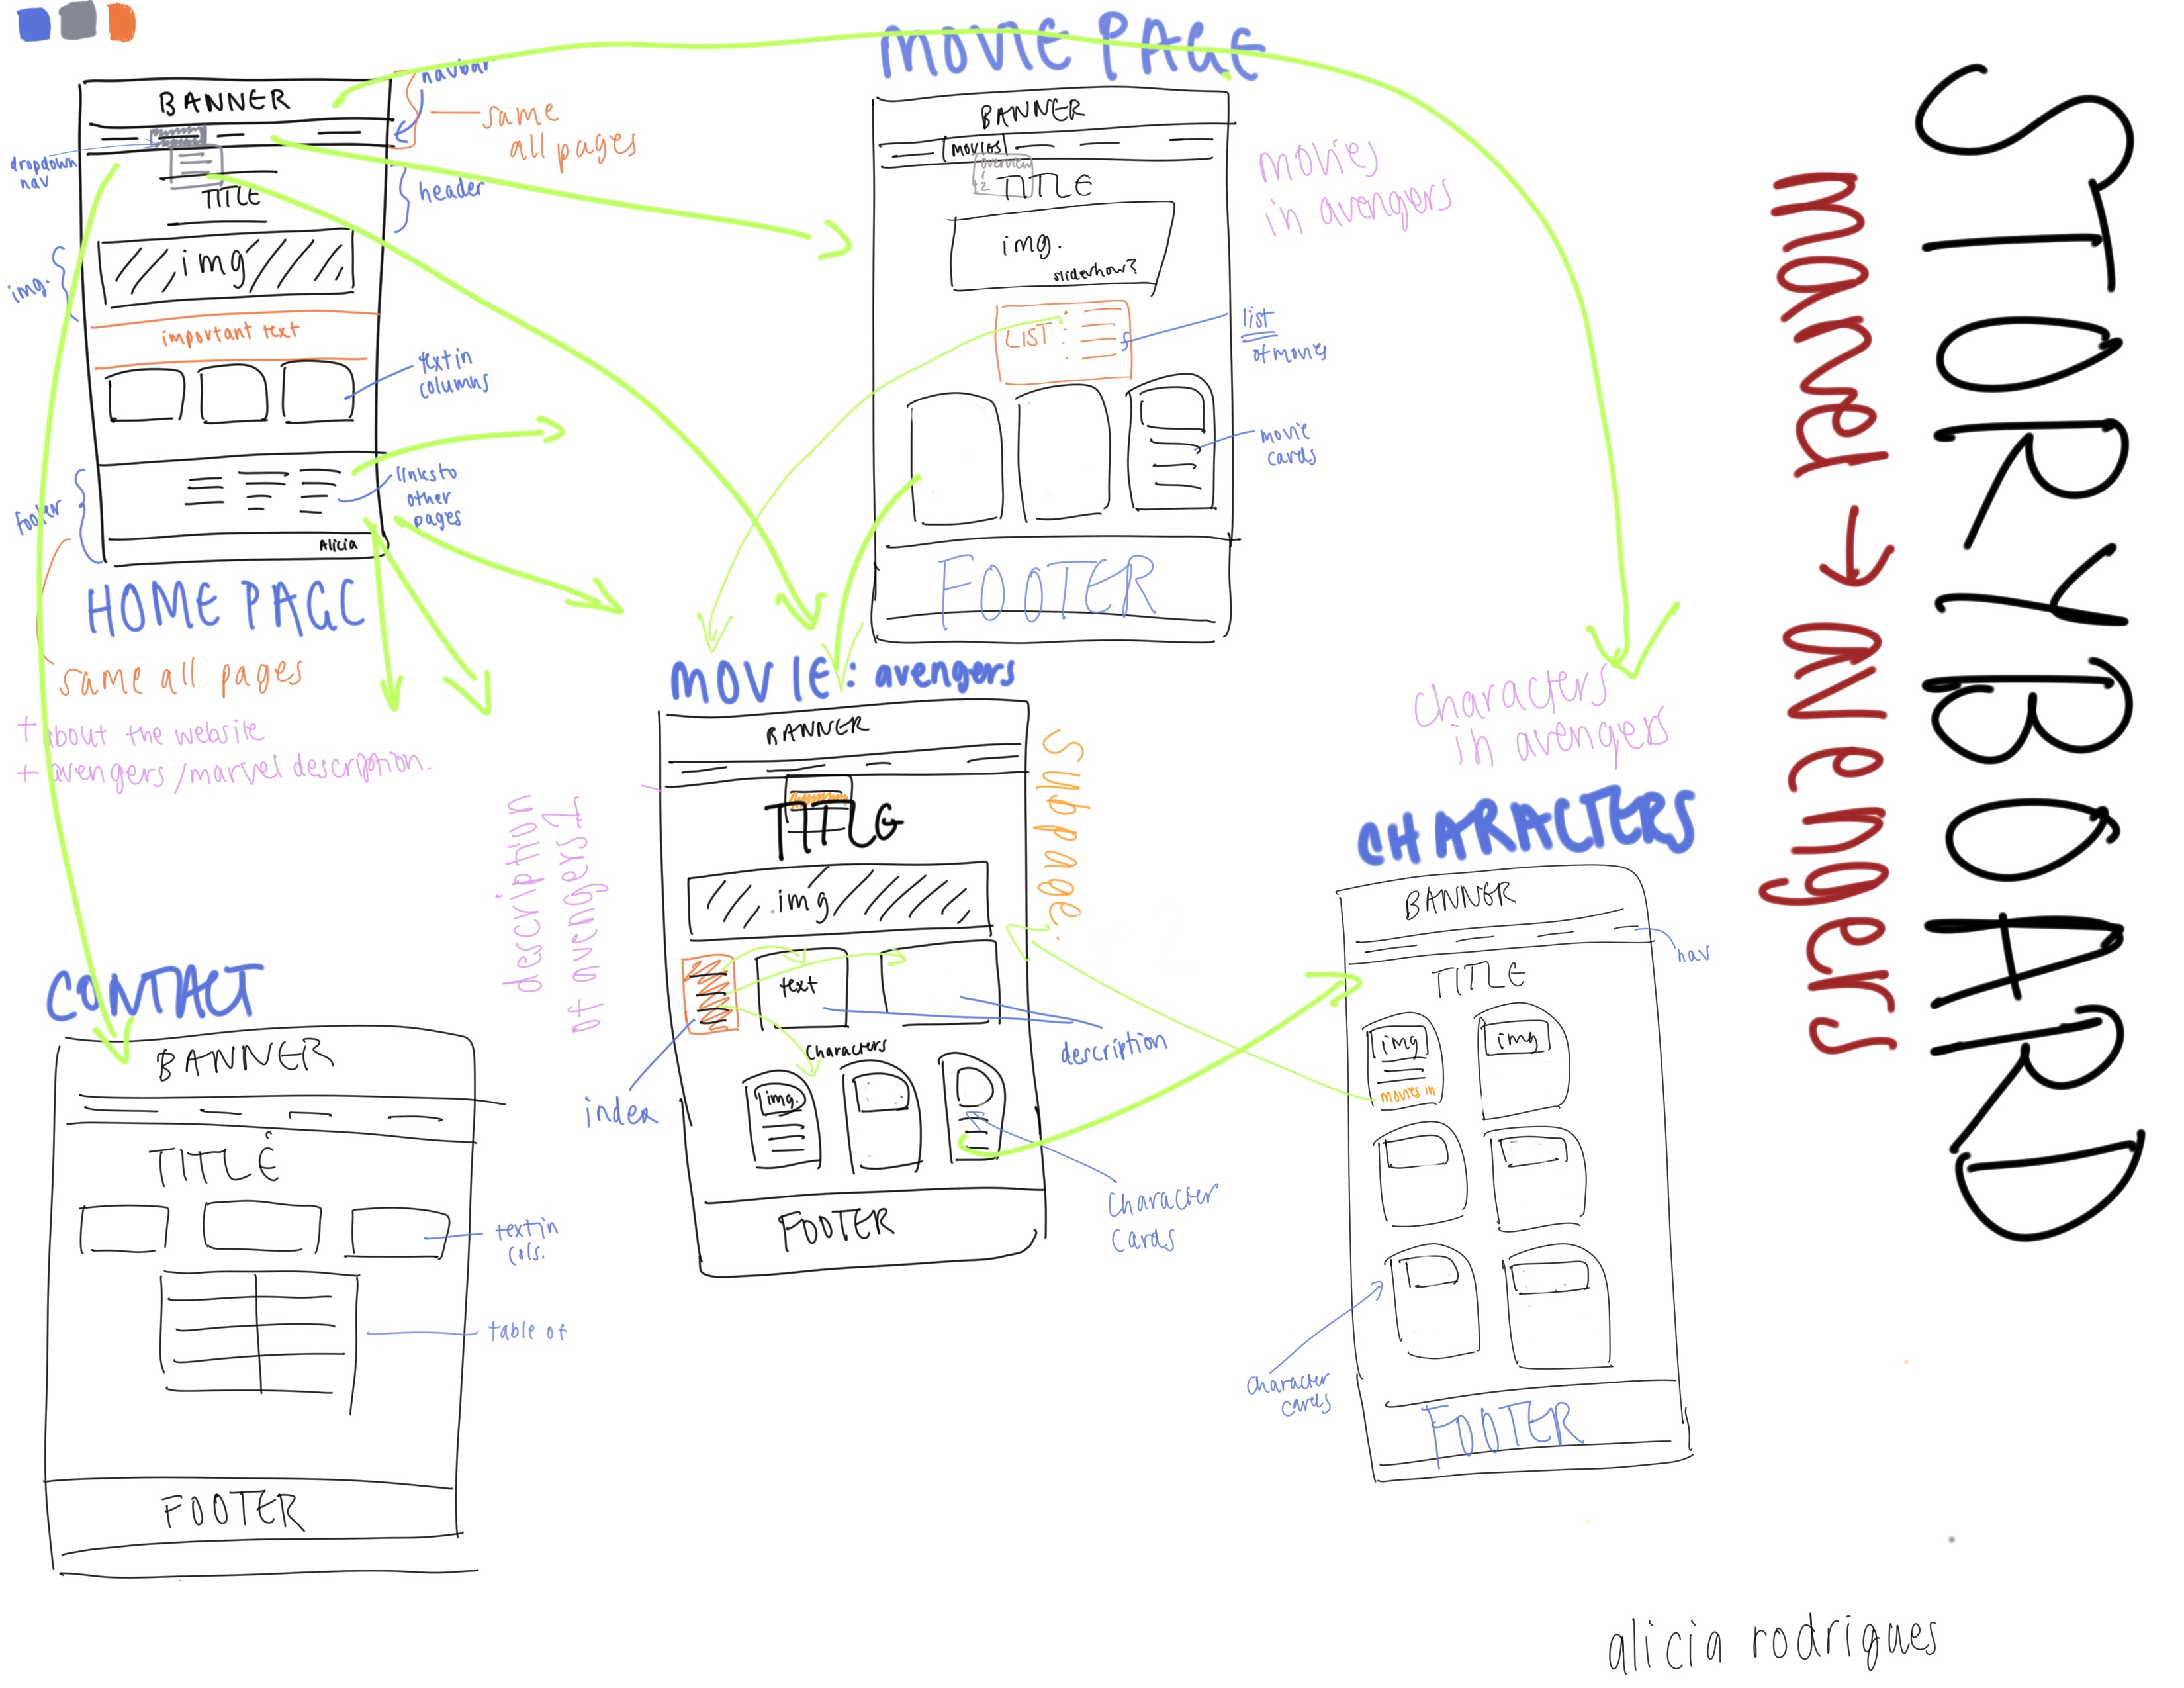 STORYBOARD
marvel → avengers
BANNER
navbar
same
all pages
dropdown
nav
header
TITLE
img
img.
important text
text in
columns
links to
other
pages
footer
Alicia
HOME PAGE
same all pages
+ about the website
+ avengers/marvel description.
MOVIE PAGE
BANNER
MOVIES
overview
1
2
TITLE
movies
in avengers
img.
sliderhow?
LIST :
list
of movies
movie
cards
FOOTER
MOVIE: avengers
BANNER
Subpage.
TITLE
description
of avengers 1
img
text
description
index
Characters
img.
Character
Cards
FOOTER
characters
in avengers
CHARACTERS
BANNER
nav
TITLE
img
img
movies in
character
cards
FOOTER
CONTACT
BANNER
TITLE
text in
cols.
table of
FOOTER
alicia rodrigues